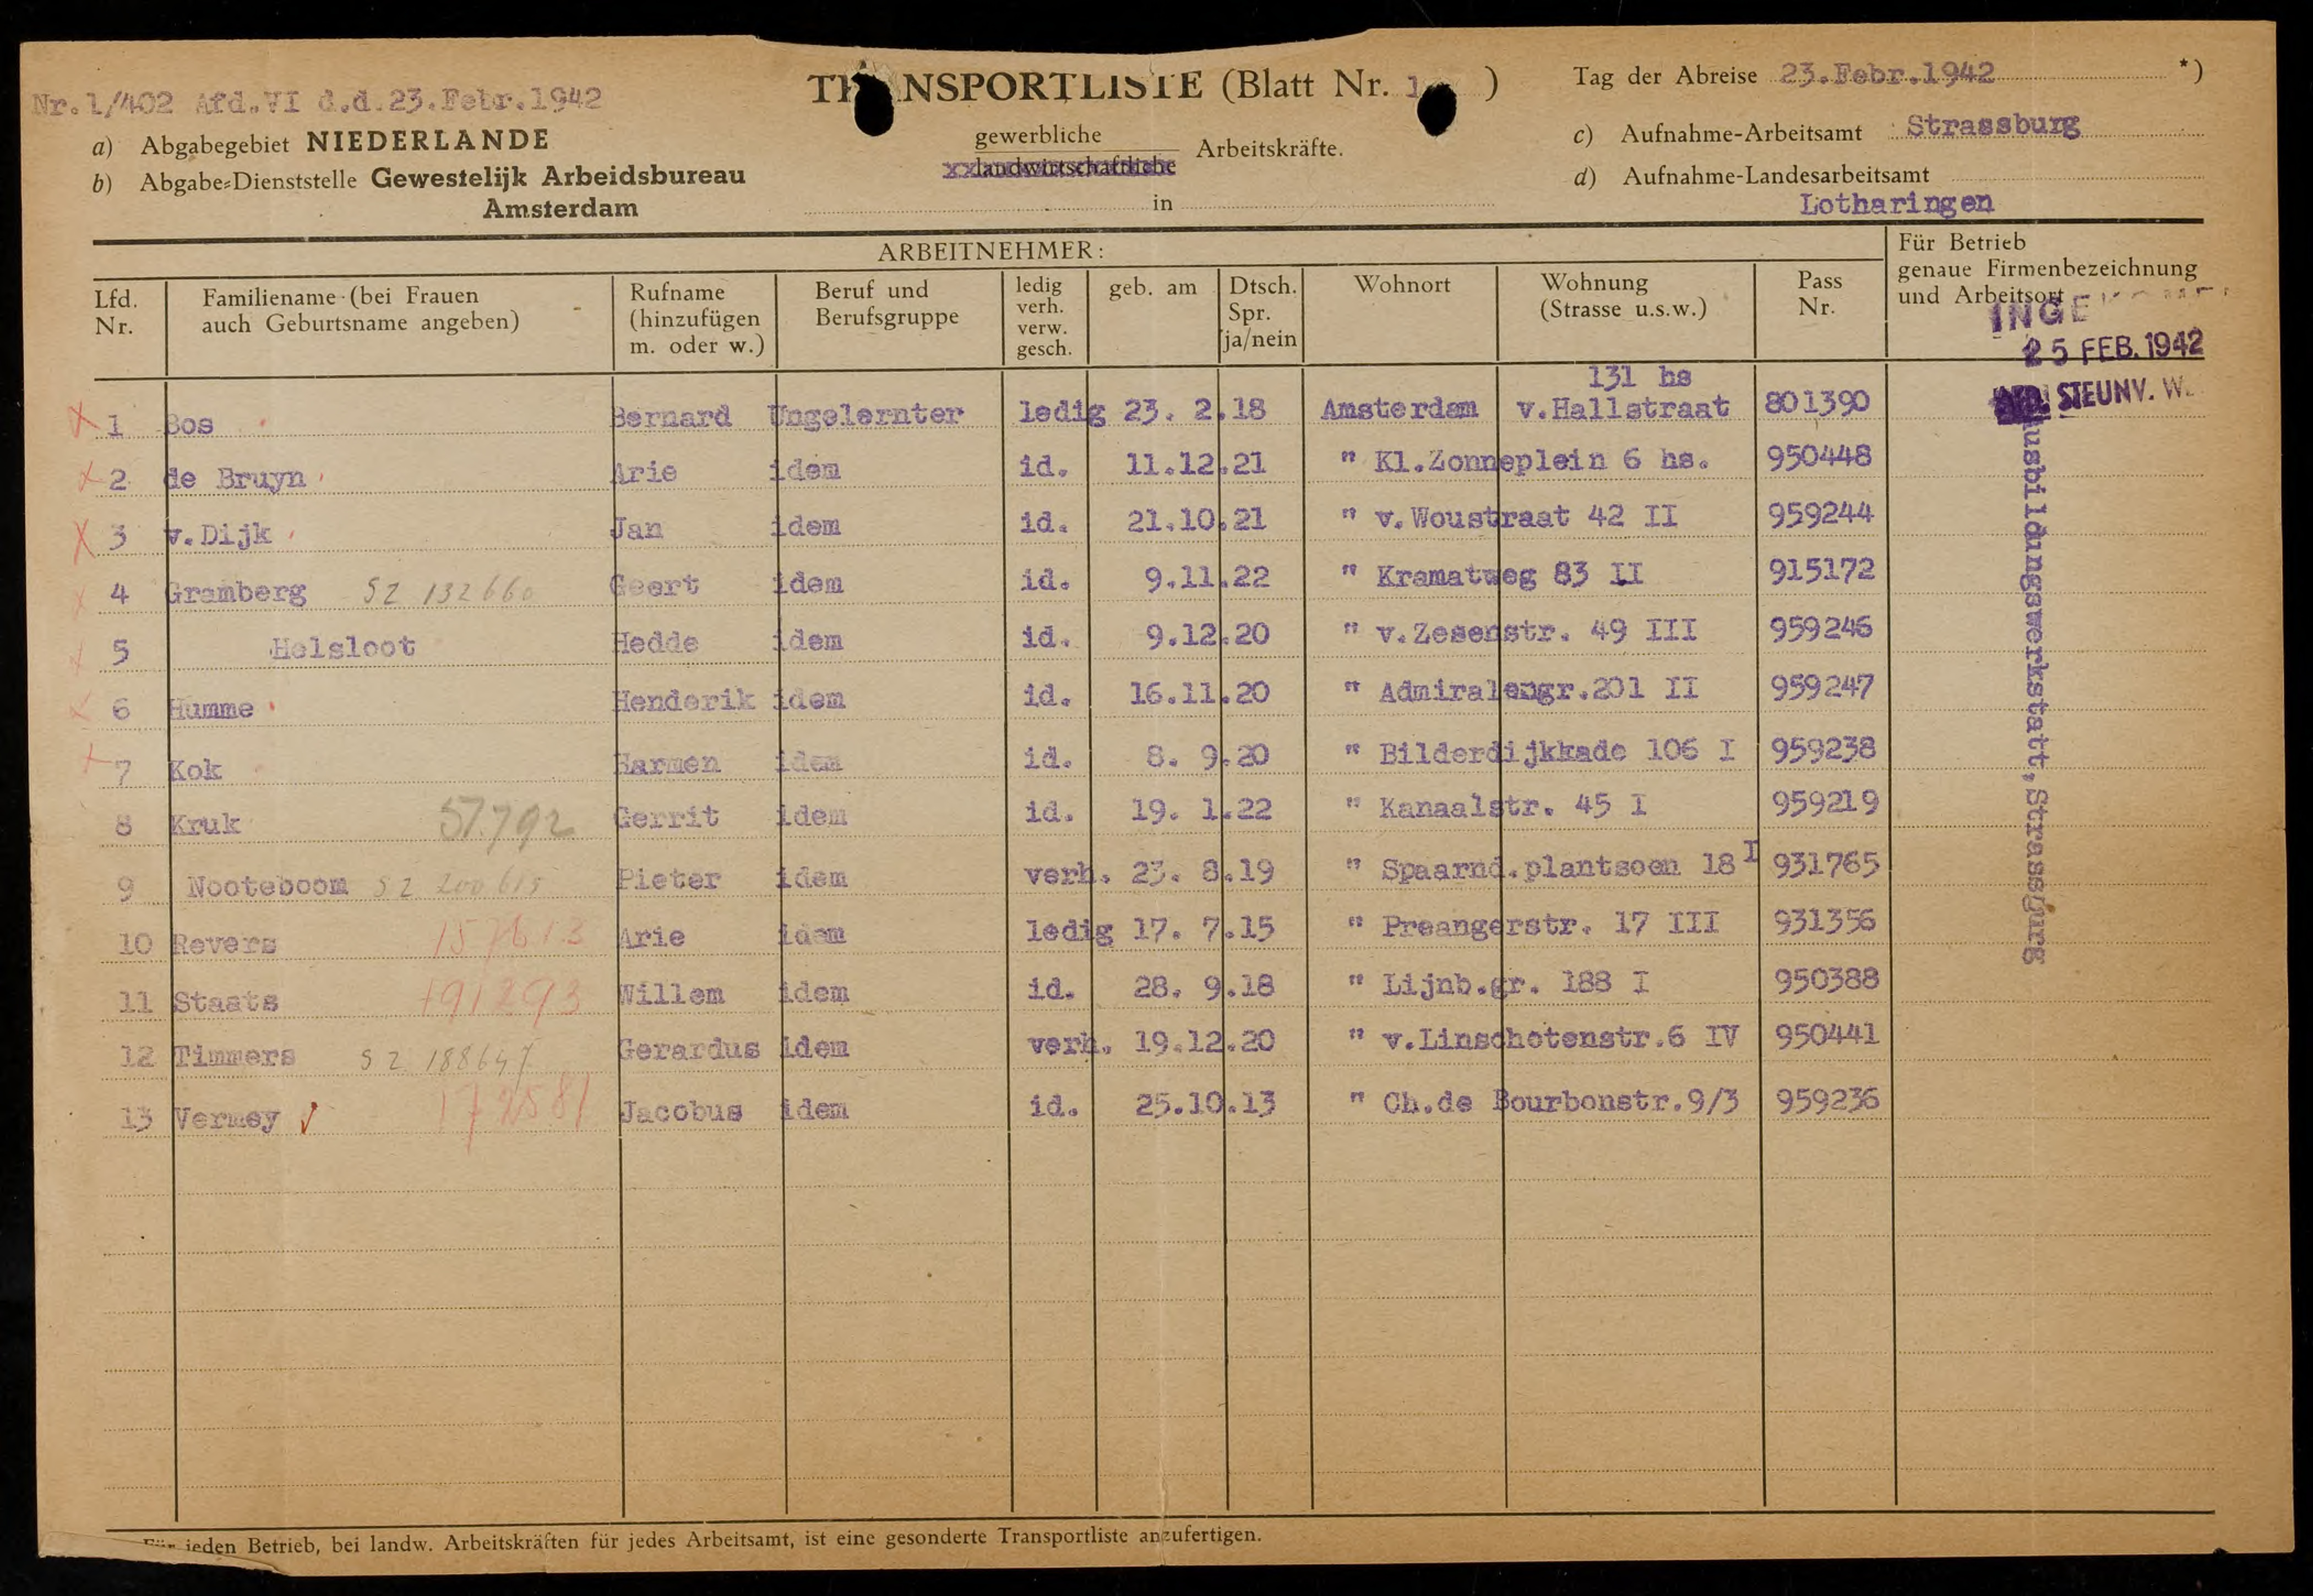 Nr.1/402 Afd.VI d.d.23.Febr.1942
TRANSPORTLISTE (Blatt Nr. 1 )
Tag der Abreise 23.Febr.1942 *)
a) Abgabegebiet NIEDERLANDE
b) Abgabe-Dienststelle Gewestelijk Arbeidsbureau
Amsterdam
gewerbliche
xxlandwirtschaftliche
Arbeitskräfte.
in
c) Aufnahme-Arbeitsamt Strassburg
d) Aufnahme-Landesarbeitsamt
Lotharingen
ARBEITNEHMER:
Lfd. Nr.
Familiename (bei Frauen auch Geburtsname angeben)
Rufname (hinzufügen m. oder w.)
Beruf und Berufsgruppe
ledig verh. verw. gesch.
geb. am
Dtsch. Spr. ja/nein
Wohnort
Wohnung (Strasse u.s.w.)
Pass Nr.
Für Betrieb genaue Firmenbezeichnung und Arbeitsort
25 FEB. 1942
STEUNV. W.
131 hs
1 Bos Bernard Ungelernter ledig 23. 2.18 Amsterdam v.Hallstraat 801390
2 de Bruyn Arie idem id. 11.12.21 " Kl.Zonneplein 6 hs. 950448
3 v.Dijk Jan idem id. 21.10.21 " v.Woustraat 42 II 959244
4 Gramberg SZ 132660 Geert idem id. 9.11.22 " Kramatweg 83 II 915172
5 Helsloot Hedde idem id. 9.12.20 " v.Zesenstr. 49 III 959246
6 Humme Henderik idem id. 16.11.20 " Admiralengr.201 II 959247
7 Kok Harmen idem id. 8. 9.20 " Bilderdijkkade 106 I 959238
8 Kruk 57.792 Gerrit idem id. 19. 1.22 " Kanaalstr. 45 I 959219
9 Nooteboom SZ 200615 Pieter idem verh. 23. 8.19 " Spaarnd.plantsoen 18 I 931765
10 Revers 157613 Arie idem ledig 17. 7.15 " Preangerstr. 17 III 931356
11 Staats 191293 Willem idem id. 28. 9.18 " Lijnb.gr. 188 I 950388
12 Timmers SZ 188647 Gerardus idem verh. 19.12.20 " v.Linschotenstr.6 IV 950441
13 Vermey 172581 Jacobus idem id. 25.10.13 " Ch.de Bourbonstr.9/3 959236
Ausbildungswerkstatt, Strassburg
Für jeden Betrieb, bei landw. Arbeitskräften für jedes Arbeitsamt, ist eine gesonderte Transportliste anzufertigen.